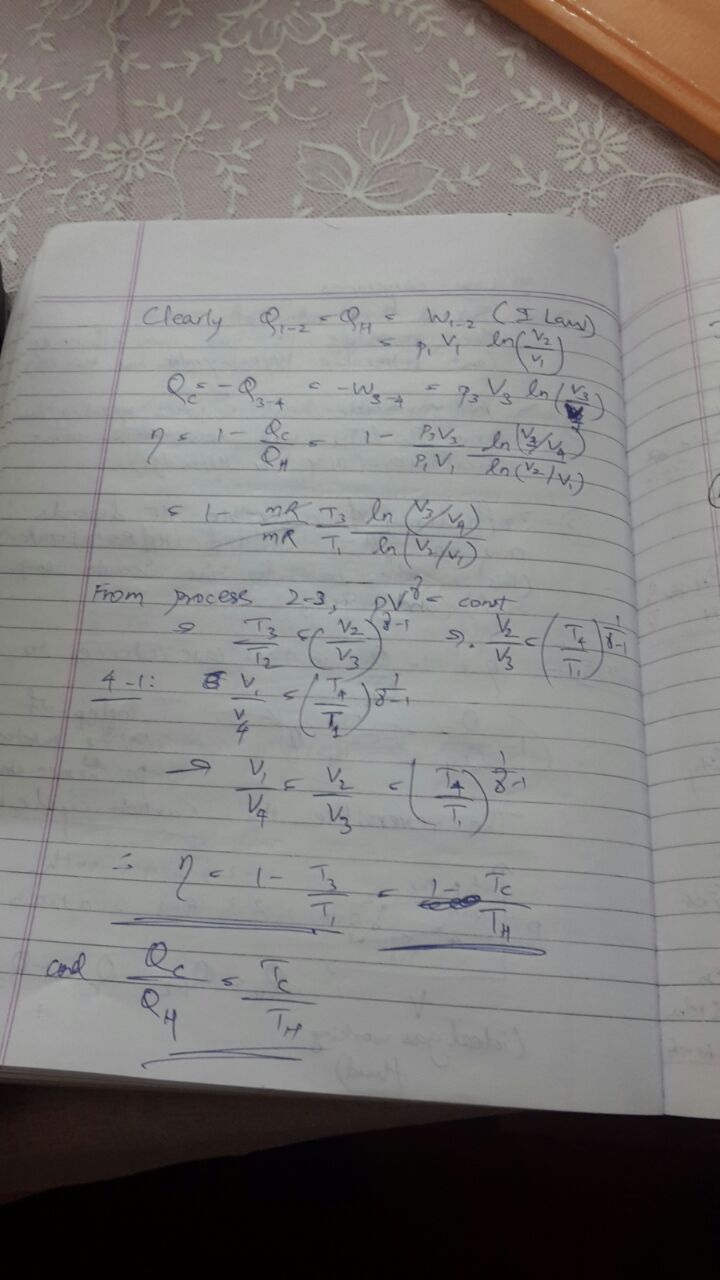 Clearly Q₁₋₂ = Q_H = W₁₋₂ (I Law)
= p₁ V₁ ln(V₂/V₁)
Q_C = -Q₃₋₄ = -W₃₋₄ = p₃ V₃ ln(V₃/V₄)
η = 1 - Q_C/Q_H = 1 - P₃V₃/P₁V₁ ln(V₃/V₄)/ln(V₂/V₁)
= 1 - mR/mR T₃/T₁ ln(V₃/V₄)/ln(V₂/V₁)
From process 2-3, pV^γ = const
⇒ T₃/T₂ = (V₂/V₃)^(γ-1) ⇒ V₂/V₃ = (T₄/T₁)^(1/(γ-1))
4-1: V₁/V₄ = (T₄/T₁)^(1/(γ-1))
→ V₁/V₄ = V₂/V₃ = (T₄/T₁)^(1/(γ-1))
∴ η = 1 - T₃/T₁ = 1 - T_C/T_H
and Q_C/Q_H = T_C/T_H